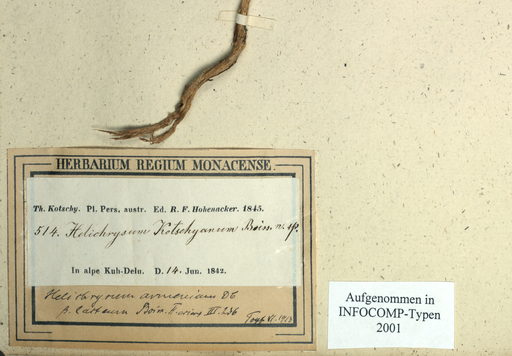 HERBARIUM REGIUM MONACENSE.
Th. Kotschy. Pl. Pers. austr. Ed. R. F. Hohenacker. 1845.
514. Helichrysum Kotschyanum Boiss. n. sp.
In alpe Kuh-Delu. D. 14. Jun. 1842.
Helichrysum armenium DC
β. Boiss. Fl. orient. III. 236
VI. 1913
Aufgenommen in
INFOCOMP-Typen
2001